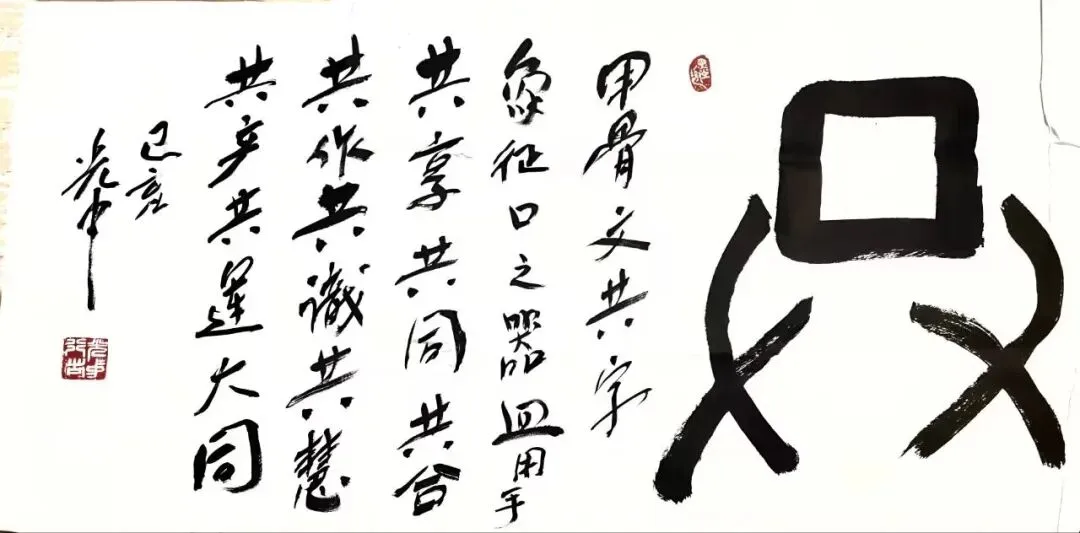 共
甲骨文共字
象征口之器皿用手
共享共同共合
共作共識共慧
共产共運大同
己亥